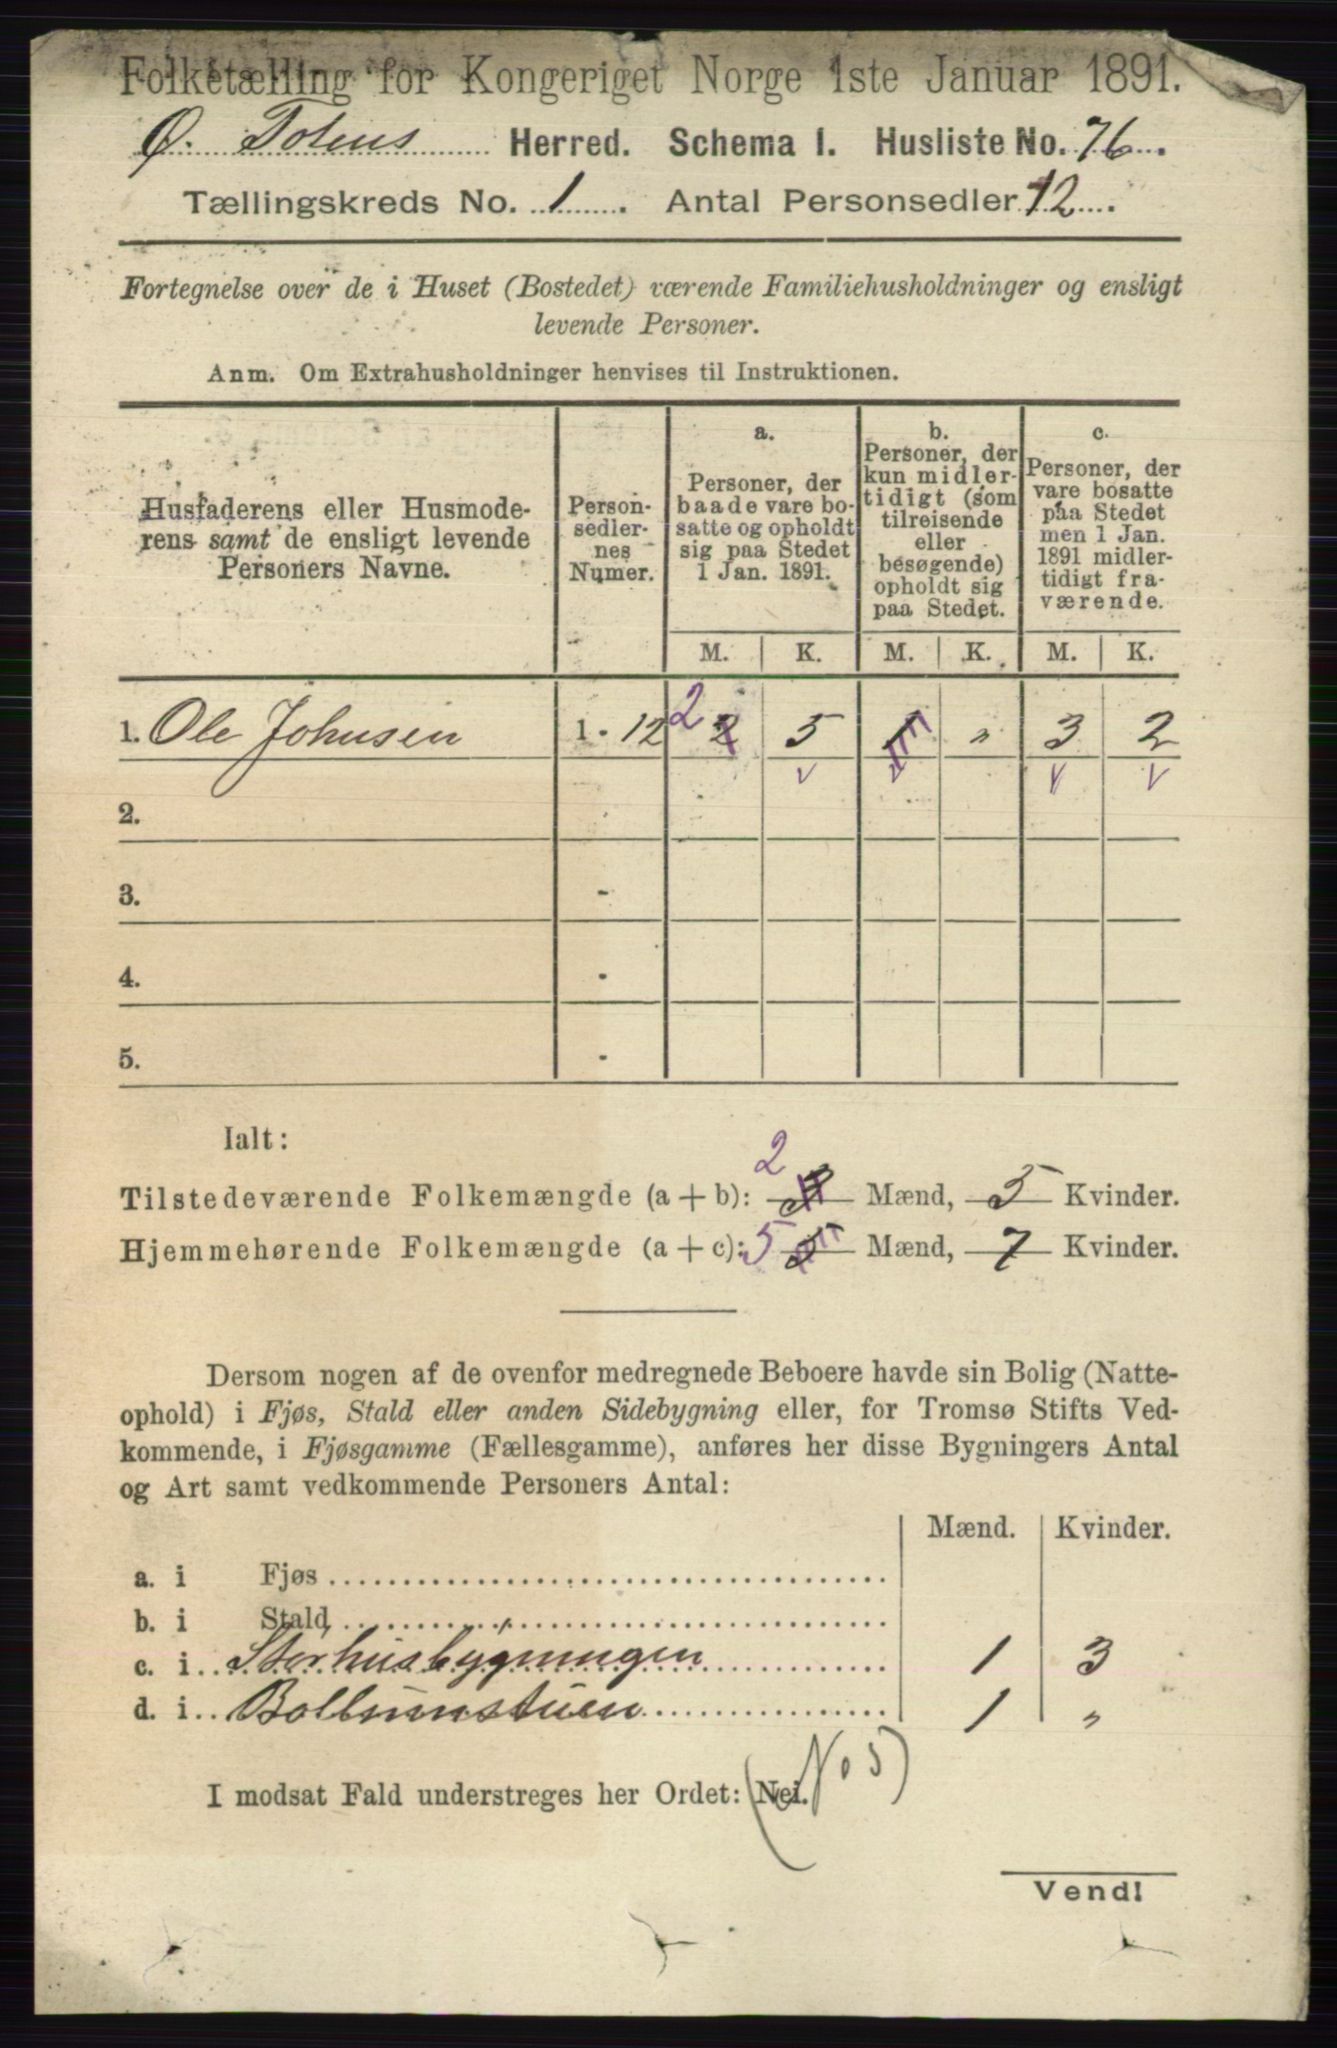 Folketælling for Kongeriget Norge 1ste Januar 1891.
Ø. Totens Herred. Schema 1. Husliste No. 76.
Tællingskreds No. 1. Antal Personsedler 12.
Fortegnelse over de i Huset (Bostedet) værende Familiehusholdninger og ensligt
levende Personer.
Anm. Om Extrahusholdninger henvises til Instruktionen.
Husfaderens eller Husmode-
rens samt de ensligt levende
Personers Navne.
Person-
sedler-
nes
Numer.
a.
Personer, der
baade vare bo-
satte og opholdt
sig paa Stedet
1 Jan. 1891.
b.
Personer, der
kun midler-
tidigt (som
tilreisende
eller
besøgende)
opholdt sig
paa Stedet.
c.
Personer, der
vare bosatte
paa Stedet
men 1 Jan.
1891 midler-
tidigt fra-
værende.
M. K. M. K. M. K.
1. Ole Johnsen 1 - 12 2 2 5 1 " 3 2
2.
3. -
4. -
5. -
Ialt:
2
Tilstedeværende Folkemængde (a + b): 3 Mænd, 5 Kvinder.
Hjemmehørende Folkemængde (a + c): 5 5 Mænd, 7 Kvinder.
Dersom nogen af de ovenfor medregnede Beboere havde sin Bolig (Natte-
ophold) i Fjøs, Stald eller anden Sidebygning eller, for Tromsø Stifts Ved-
kommende, i Fjøsgamme (Fællesgamme), anføres her disse Bygningers Antal
og Art samt vedkommende Personers Antal:
Mænd. Kvinder.
a. i Fjøs
b. i Stald
c. i Storhusbygningen 1 3
d. i 1 "
I modsat Fald understreges her Ordet: Nei. (No 5)
Vend!